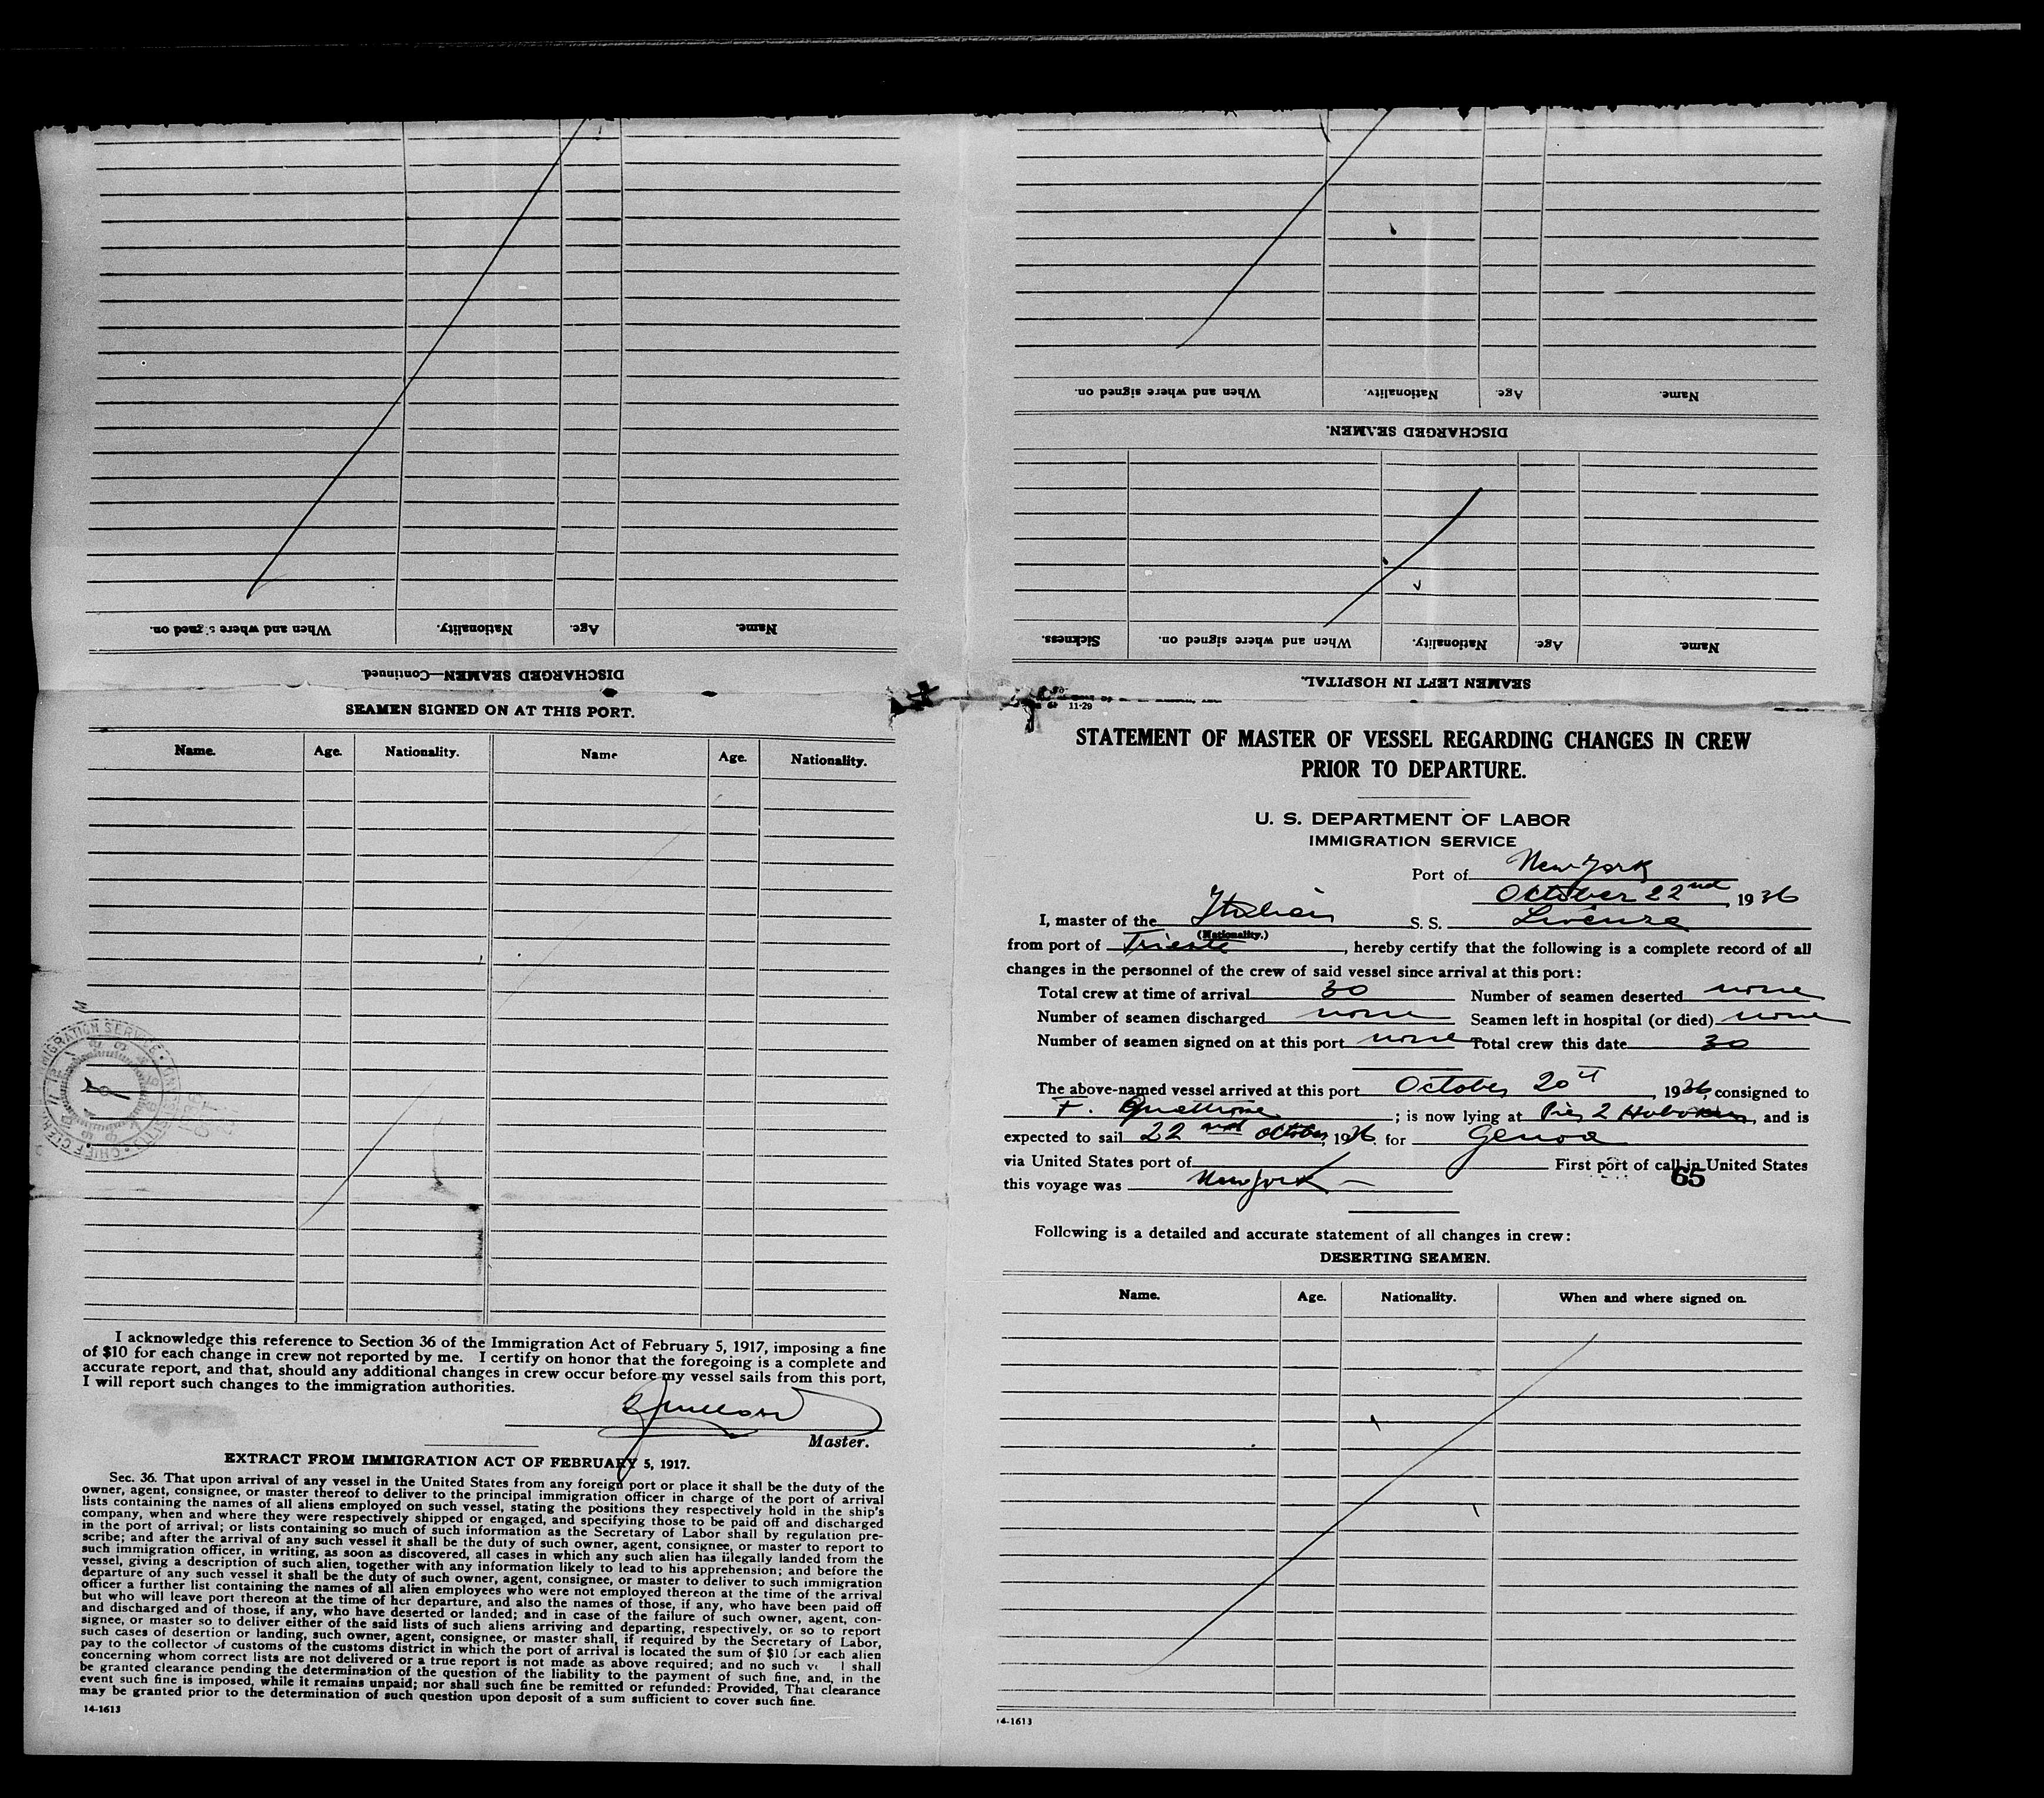 DISCHARGED SEAMEN—Continued.
Name. Age. Nationality. When and where signed on.
SEAMEN LEFT IN HOSPITAL.
Name. Age. Nationality. When and where signed on. Sickness.
DISCHARGED SEAMEN.
Name. Age. Nationality. When and where signed on.
SEAMEN SIGNED ON AT THIS PORT.
Name. Age. Nationality. Name Age. Nationality.
IMMIGRATION SERVICE
CHIEF CLERK
I acknowledge this reference to Section 36 of the Immigration Act of February 5, 1917, imposing a fine
of $10 for each change in crew not reported by me. I certify on honor that the foregoing is a complete and
accurate report, and that, should any additional changes in crew occur before my vessel sails from this port,
I will report such changes to the immigration authorities.
Master.
EXTRACT FROM IMMIGRATION ACT OF FEBRUARY 5, 1917.
Sec. 36. That upon arrival of any vessel in the United States from any foreign port or place it shall be the duty of the
owner, agent, consignee, or master thereof to deliver to the principal immigration officer in charge of the port of arrival
lists containing the names of all aliens employed on such vessel, stating the positions they respectively hold in the ship's
company, when and where they were respectively shipped or engaged, and specifying those to be paid off and discharged
in the port of arrival; or lists containing so much of such information as the Secretary of Labor shall by regulation pre-
scribe; and after the arrival of any such vessel it shall be the duty of such owner, agent, consignee, or master to report to
such immigration officer, in writing, as soon as discovered, all cases in which any such alien has illegally landed from the
vessel, giving a description of such alien, together with any information likely to lead to his apprehension; and before the
departure of any such vessel it shall be the duty of such owner, agent, consignee, or master to deliver to such immigration
officer a further list containing the names of all alien employees who were not employed thereon at the time of the arrival
but who will leave port thereon at the time of her departure, and also the names of those, if any, who have been paid off
and discharged and of those, if any, who have deserted or landed; and in case of the failure of such owner, agent, con-
signee, or master so to deliver either of the said lists of such aliens arriving and departing, respectively, or so to report
such cases of desertion or landing, such owner, agent, consignee, or master shall, if required by the Secretary of Labor,
pay to the collector of customs of the customs district in which the port of arrival is located the sum of $10 for each alien
concerning whom correct lists are not delivered or a true report is not made as above required; and no such shall
be granted clearance pending the determination of the question of the liability to the payment of such fine, and, in the
event such fine is imposed, while it remains unpaid; nor shall such fine be remitted or refunded: Provided, That clearance
may be granted prior to the determination of such question upon deposit of a sum sufficient to cover such fine.
14-1613
11-29
STATEMENT OF MASTER OF VESSEL REGARDING CHANGES IN CREW
PRIOR TO DEPARTURE.
U. S. DEPARTMENT OF LABOR
IMMIGRATION SERVICE
Port of New York
October 22nd, 1936
I, master of the Italian S. S. Livenza
(Nationality.)
from port of Trieste, hereby certify that the following is a complete record of all
changes in the personnel of the crew of said vessel since arrival at this port:
Total crew at time of arrival 30 Number of seamen deserted none
Number of seamen discharged none Seamen left in hospital (or died) none
Number of seamen signed on at this port none Total crew this date 30
The above-named vessel arrived at this port October 20, 1936, consigned to
F. ; is now lying at Pier 2 Hoboken, and is
expected to sail 22nd October, 1936. for Genoa
via United States port of First port of call in United States
65
this voyage was New York —
Following is a detailed and accurate statement of all changes in crew:
DESERTING SEAMEN.
Name. Age. Nationality. When and where signed on.
14-1613